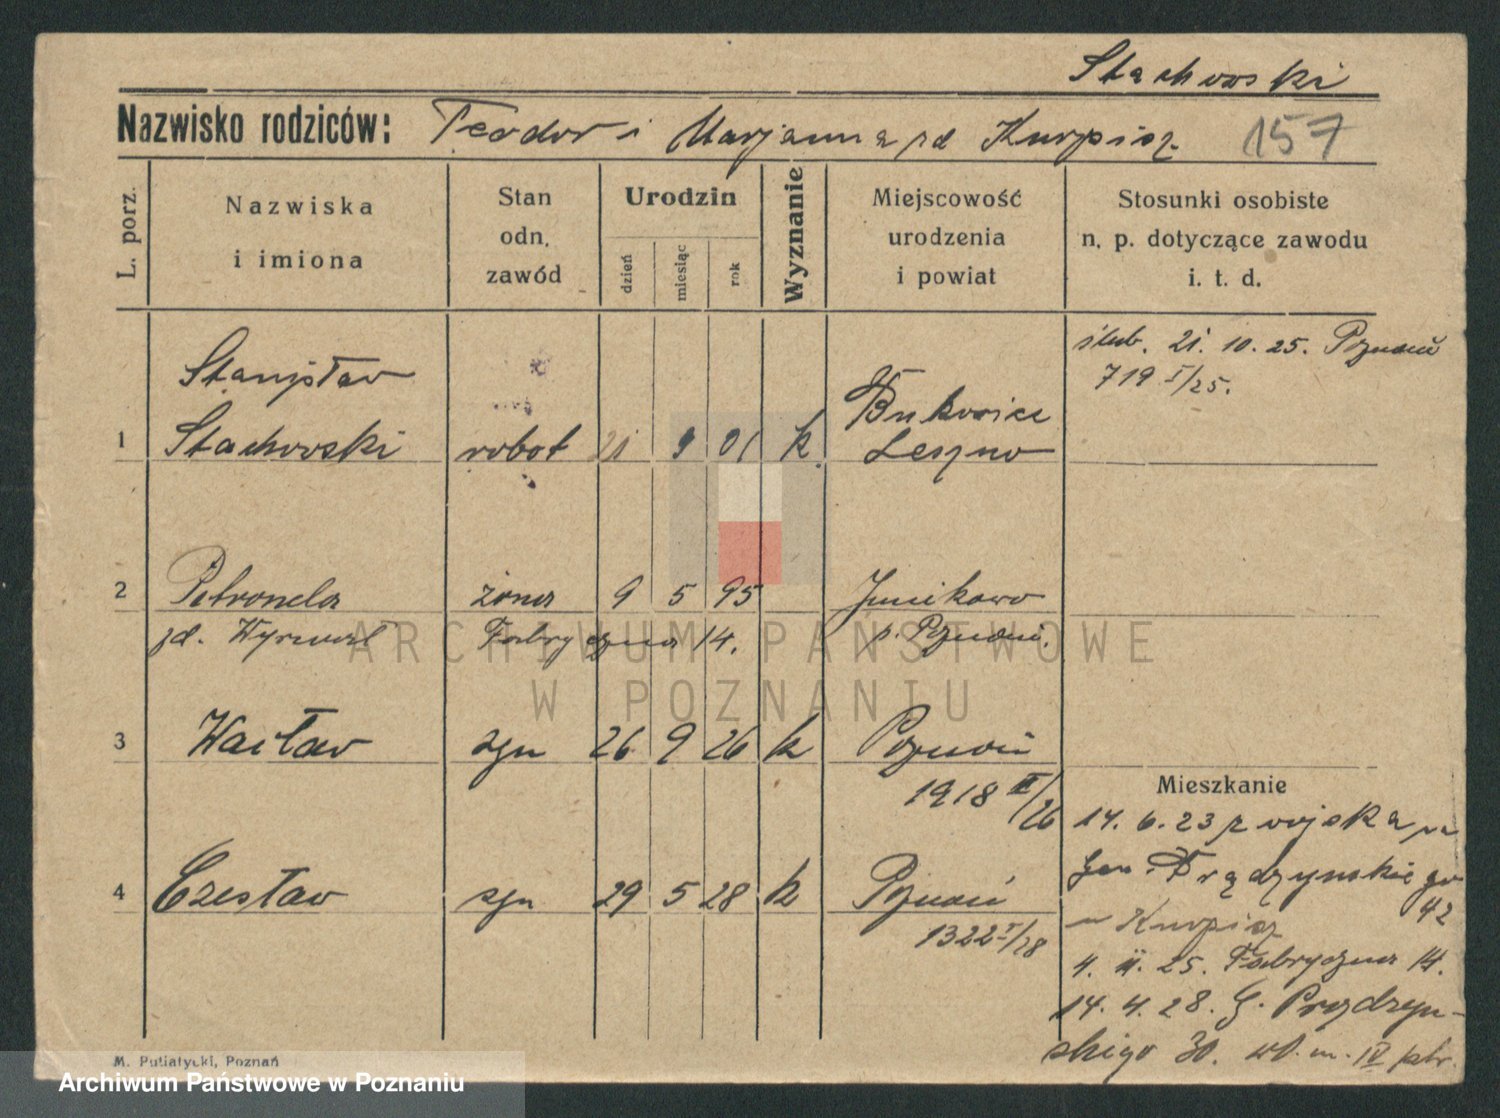 Stachowski
Nazwisko rodziców: Teodor i Marjanna zd Kurpisz 157
L. porz.
Nazwiska i imiona
Stan odn. zawód
Urodzin
dzień
miesiąc
rok
Wyznanie
Miejscowość urodzenia i powiat
Stosunki osobiste n. p. dotyczące zawodu i. t. d.
ślub. 21. 10. 25. Poznań
719 I/25.
Stanisław
Bukowiec
1 Stachowski robot 21 9 01 k Leszno
2 Petronela żona 9 5 95 Junikowo
zd. Fabryczna 14. p. Poznań.
3 Wacław syn 26 9 26 k Poznań
1918 II/26
Mieszkanie
14. 6. 23 z wojska na
Gen. Prądzyńskiego
42
u Kurpisz
4 Czesław syn 29 5 28 k Poznań
1322 I/28
4. II. 25. Fabryczna 14.
14. 4. 28. G. Prądzyń-
skiego 30. wł. m. IV ptr.
M. Putiatycki, Poznań
ARCHIWUM PAŃSTWOWE
W POZNANIU
Archiwum Państwowe w Poznaniu